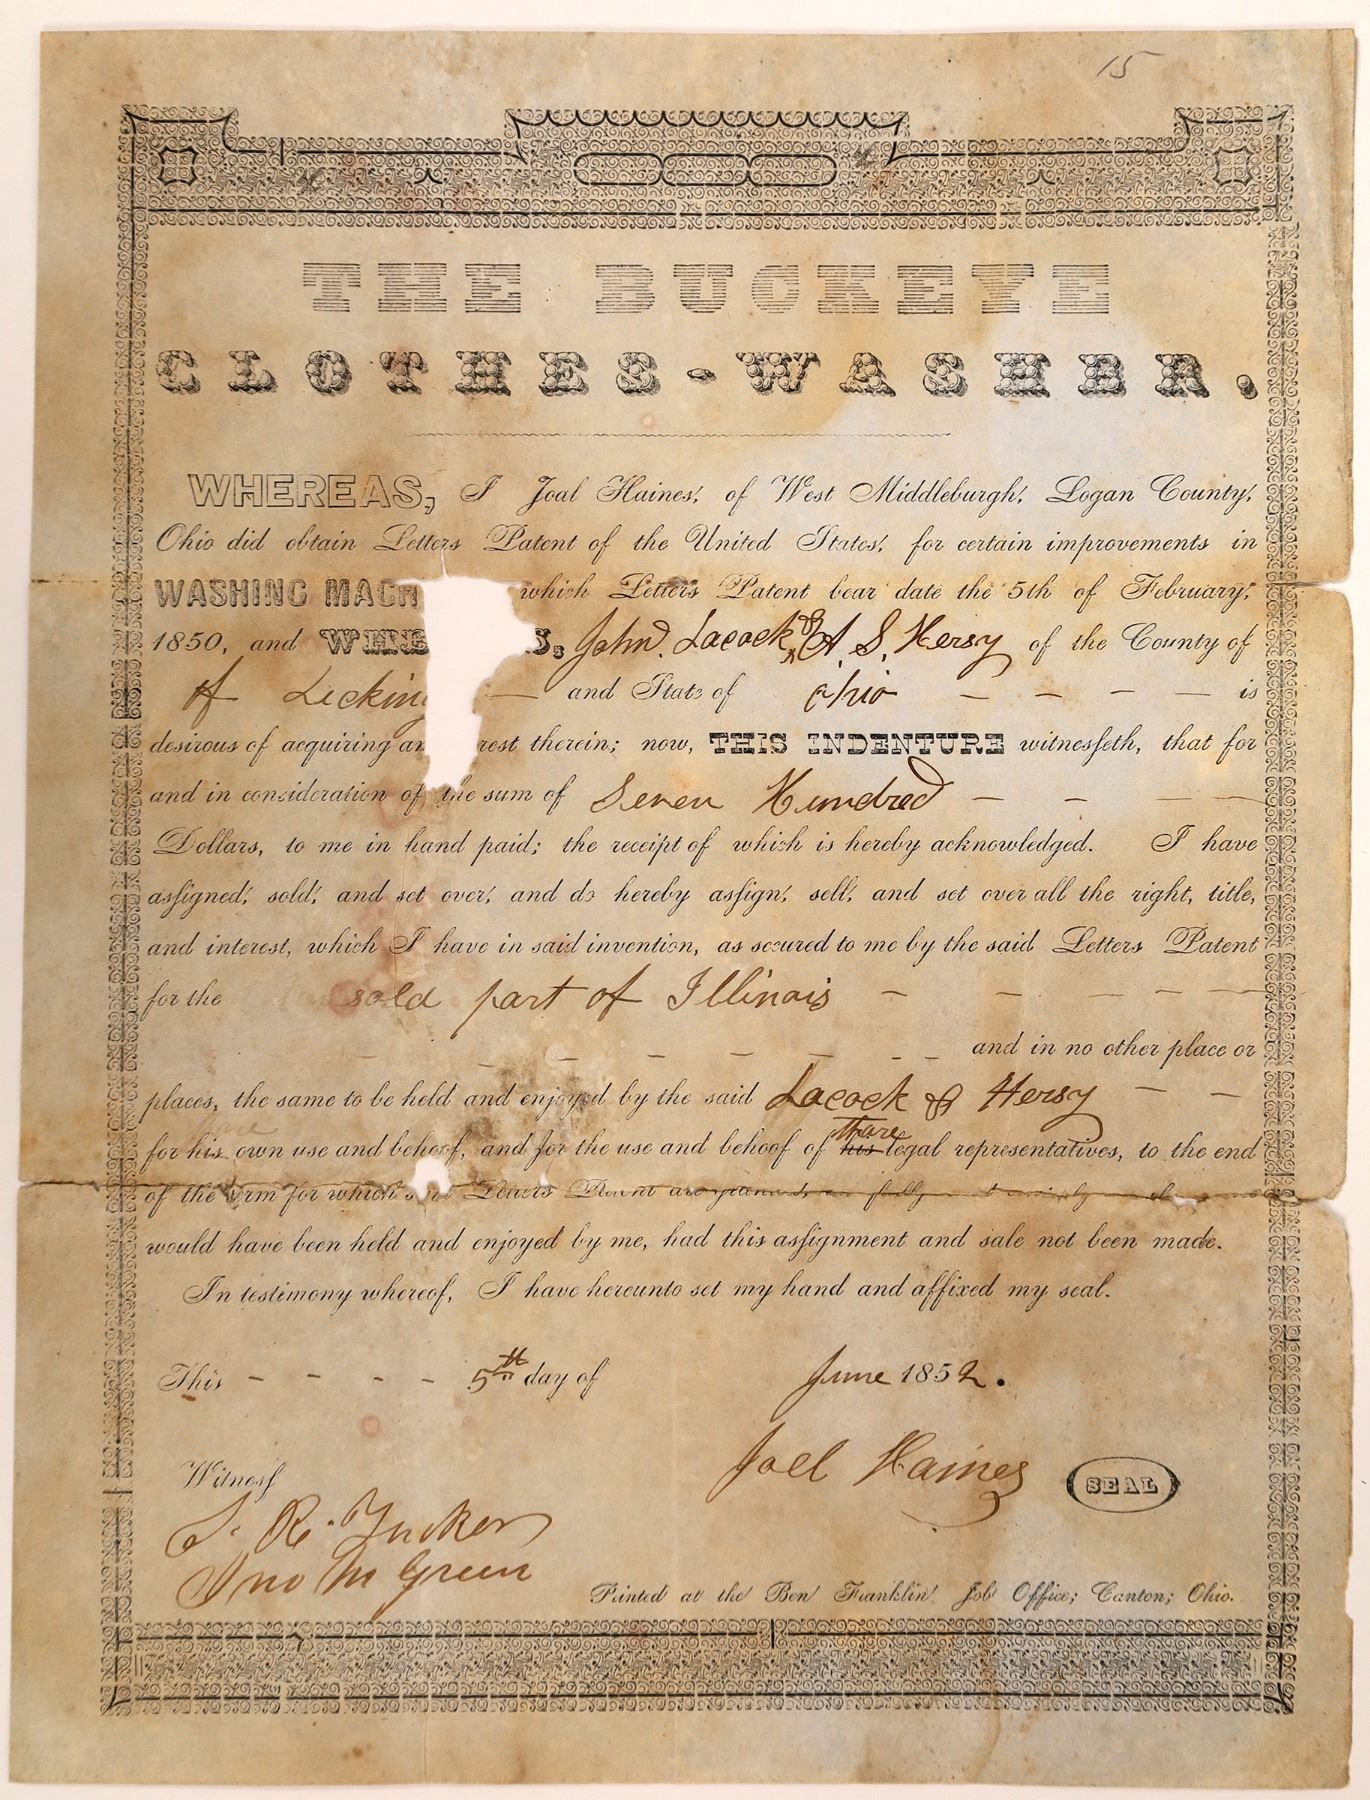 15
THE BUCKEYE
CLOTHES-WASHER.
WHEREAS, I Joal Haines, of West Middleburgh, Logan County,
Ohio did obtain Letters Patent of the United States, for certain improvements in
WASHING MACH which Letters Patent bear date the 5th of February,
1850, and WHE S, John Lacock & A. S. Hersy of the County of
of Licking — and State of Ohio — — — — is
desirous of acquiring an rest therein; now, THIS INDENTURE witnesseth, that for
and in consideration of the sum of Seven Hundred — — — —
Dollars, to me in hand paid; the receipt of which is hereby acknowledged. I have
assigned, sold, and set over, and do hereby assign, sell, and set over all the right, title,
and interest, which I have in said invention, as secured to me by the said Letters Patent
for the sold part of Illinois — — — — —
— — — — — — - - and in no other place or
places, the same to be held and enjoyed by the said Lacock & Hersy — —
for his own use and behoof, and for the use and behoof of his thare legal representatives, to the end
of the term for which Letters Patent are
would have been held and enjoyed by me, had this assignment and sale not been made.
In testimony whereof, I have hereunto set my hand and affixed my seal.
This - - - - 5th day of June 1852.
Joel Haines SEAL
Witness
R. Tucker
Jno M Green
Printed at the Ben Franklin Job Office; Canton; Ohio.